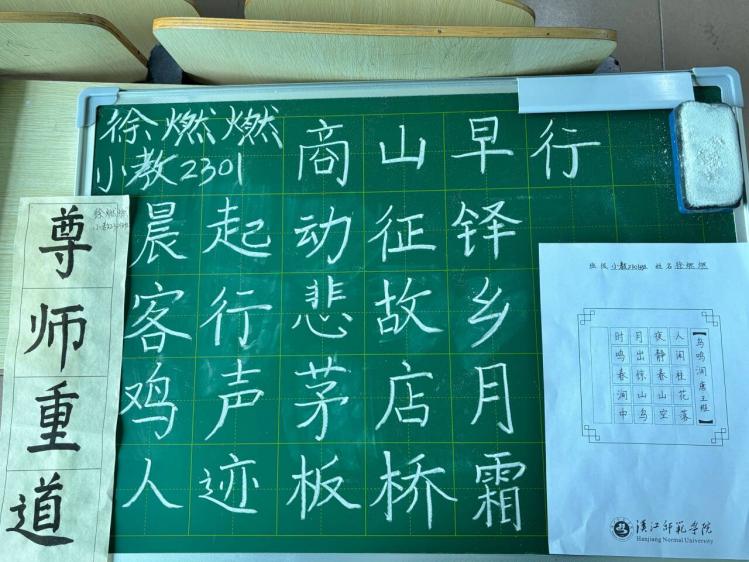 徐燃燃
小教2301
商山早行
晨起动征铎
客行悲故乡
鸡声茅店月
人迹板桥霜
尊师重道
徐燃燃
小教2301班
班级 小教2301班 姓名 徐燃燃
【鸟鸣涧唐王维】
人闲桂花落
夜静春山空
月出惊山鸟
时鸣春涧中
汉江师范学院
Hanjiang Normal University